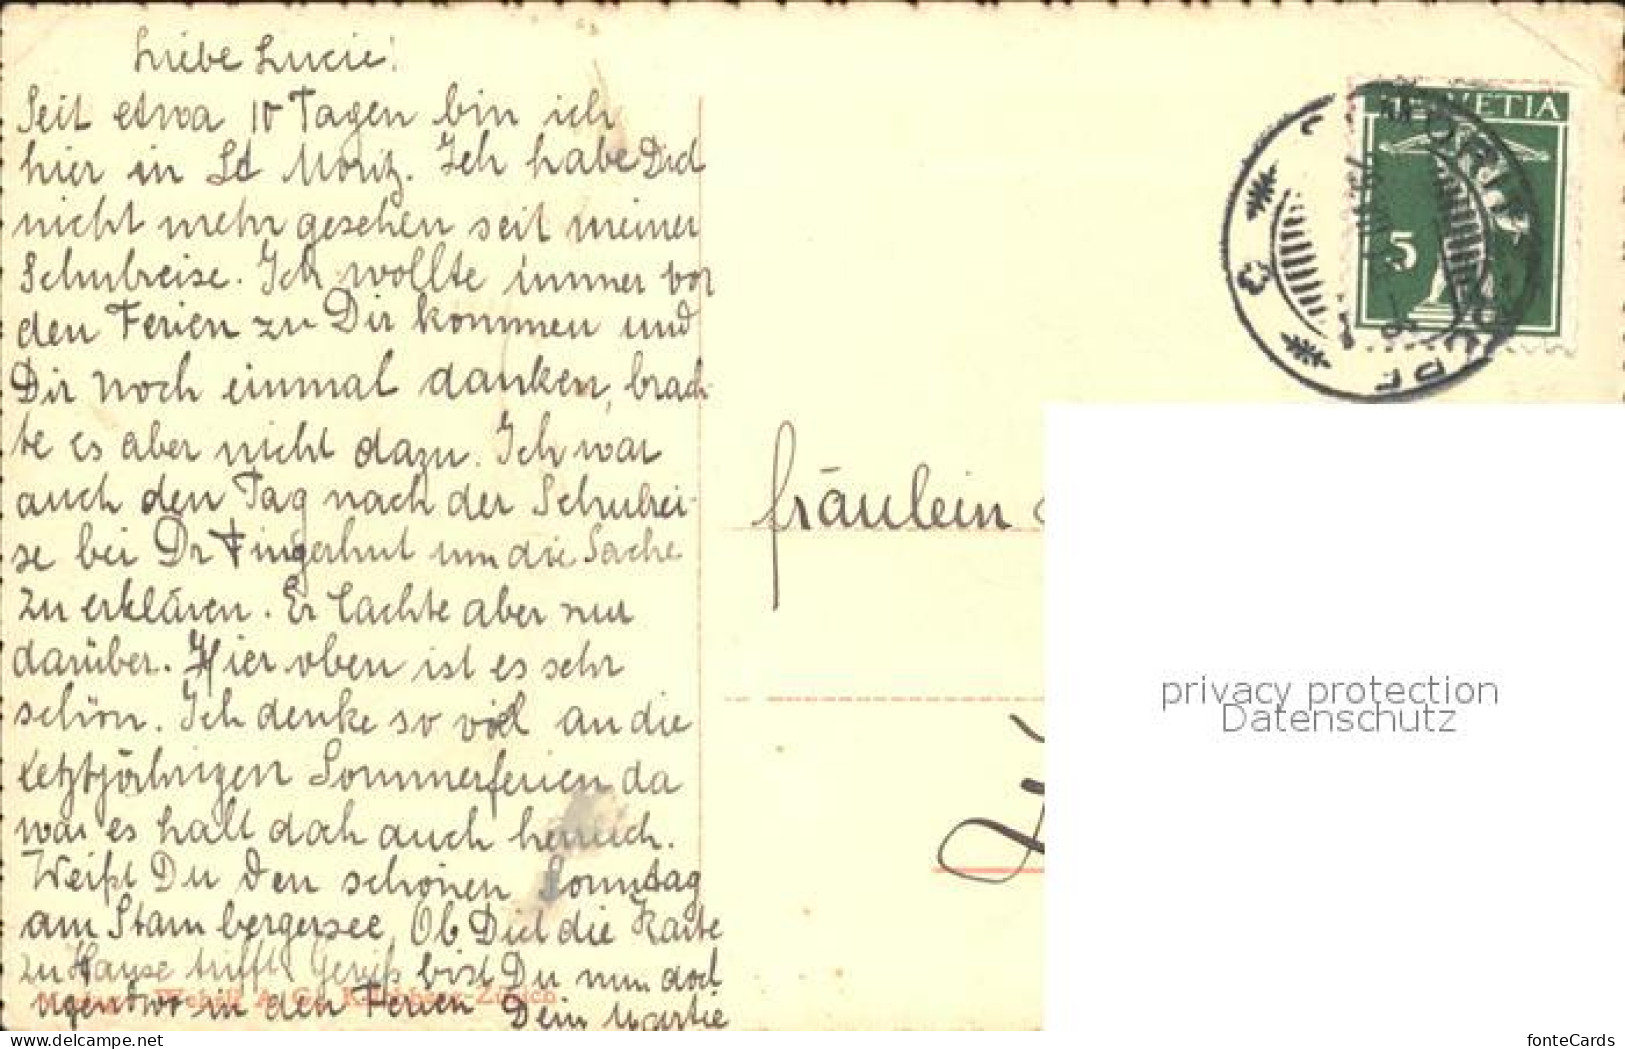 Liebe Lucie!
Seit etwa 10 Tagen bin ich
hier in St Moritz. Ich habe Dich
nicht mehr gesehen seit meiner
Schulreise. Ich wollte immer vor
den Ferien zu Dir kommen und
Dir noch einmal danken, brach-
te es aber nicht dazu. Ich war
auch den Tag nach der Schulrei-
se bei Dr Fingerhut um die Sache
zu erklären. Er lachte aber nur
darüber. Hier oben ist es sehr
schön. Ich denke so viel an die
letztjährigen Sommerferien da
war es halt doch auch herrlich.
Weißt Du den schönen Sonntag
am Starnbergersee. Ob Dich die Karte
zu Hause trifft. Gewiß bist Du nun doch
irgendwo in den Ferien Dein
HELVETIA
5
DORF
Fräulein
privacy protection
Datenschutz
www.delcampe.net
fonteCards